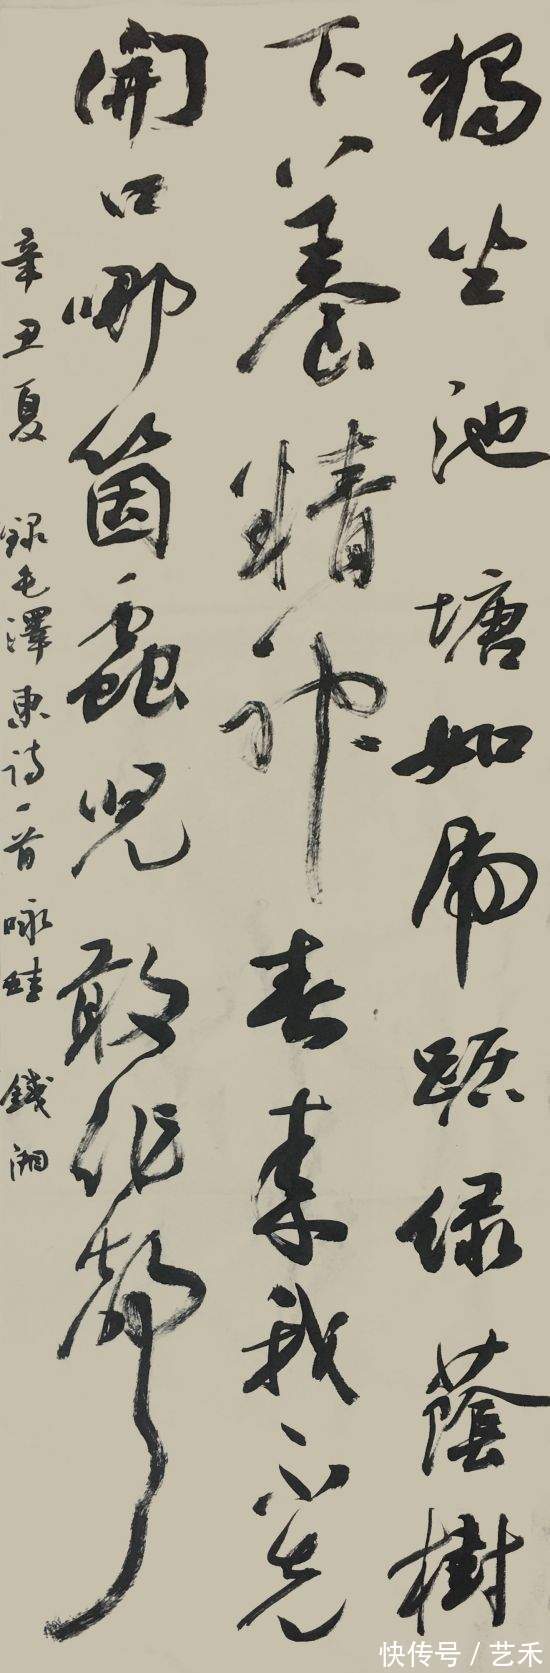 獨坐池塘如虎踞綠蔭樹
下養精神春來我不先
開口哪箇蟲兒敢作聲
辛丑夏 録毛澤東詩一首咏蛙 鐵湘
快传号／艺禾